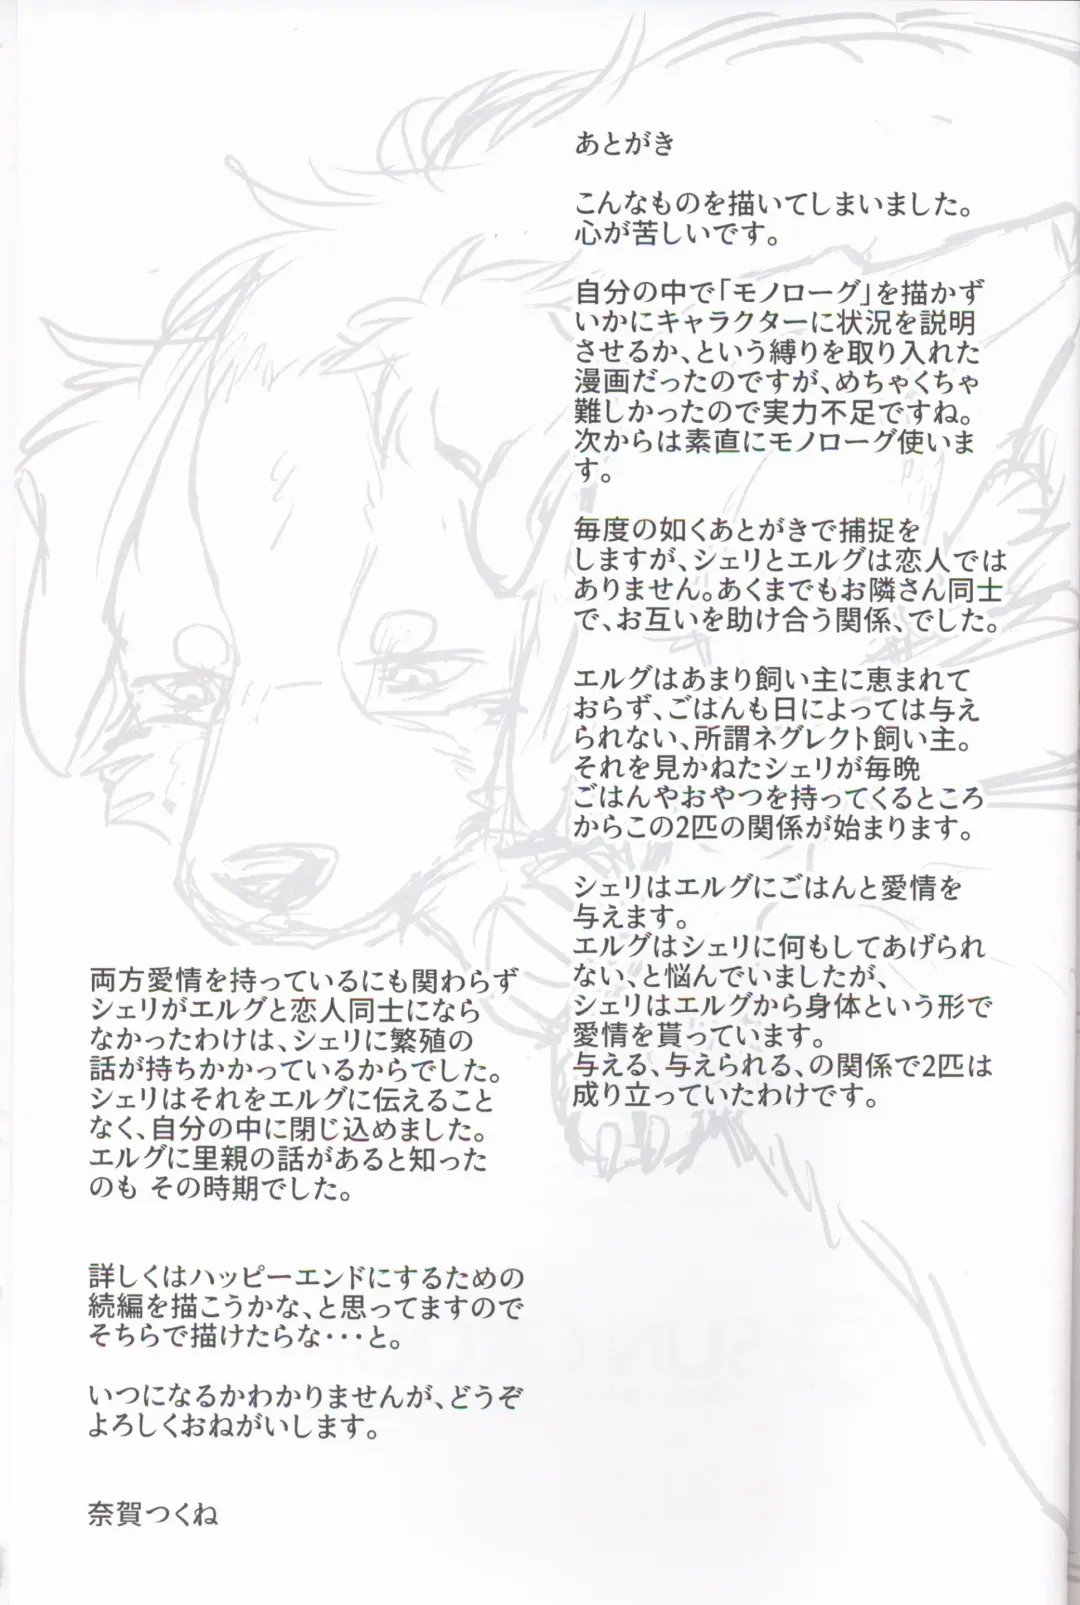 あとがき
こんなものを描いてしまいました。
心が苦しいです。
自分の中で「モノローグ」を描かず
いかにキャラクターに状況を説明
させるか、という縛りを取り入れた
漫画だったのですが、めちゃくちゃ
難しかったので実力不足ですね。
次からは素直にモノローグ使いま
す。
毎度の如くあとがきで捕捉を
しますが、シェリとエルグは恋人では
ありません。あくまでもお隣さん同士
で、お互いを助け合う関係、でした。
エルグはあまり飼い主に恵まれて
おらず、ごはんも日によっては与え
られない、所謂ネグレクト飼い主。
それを見かねたシェリが毎晩
ごはんやおやつを持ってくるところ
からこの2匹の関係が始まります。
シェリはエルグにごはんと愛情を
与えます。
エルグはシェリに何もしてあげられ
ない、と悩んでいましたが、
シェリはエルグから身体という形で
愛情を貰っています。
与える、与えられる、の関係で2匹は
成り立っていたわけです。
両方愛情を持っているにも関わらず
シェリがエルグと恋人同士になら
なかったわけは、シェリに繁殖の
話が持ちかかっているからでした。
シェリはそれをエルグに伝えること
なく、自分の中に閉じ込めました。
エルグに里親の話があると知った
のも その時期でした。
詳しくはハッピーエンドにするための
続編を描こうかな、と思ってますので
そちらで描けたらな・・・と。
いつになるかわかりませんが、どうぞ
よろしくおねがいします。
奈賀つくね